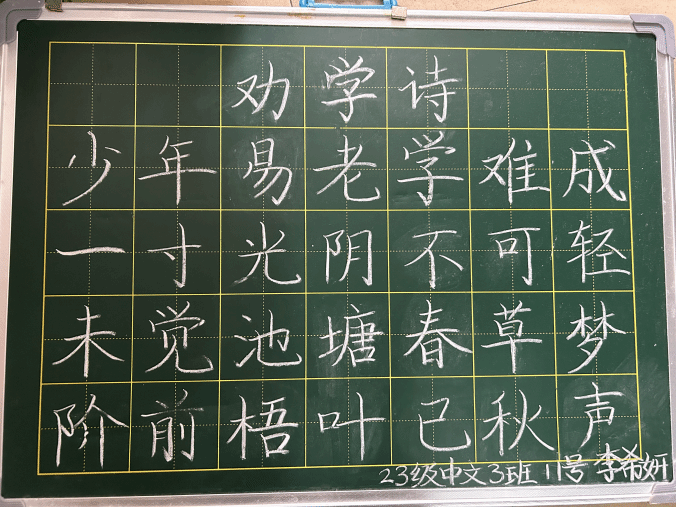 劝学诗
少年易老学难成
一寸光阴不可轻
未觉池塘春草梦
阶前梧叶已秋声
23级中文3班 11号 李希妍